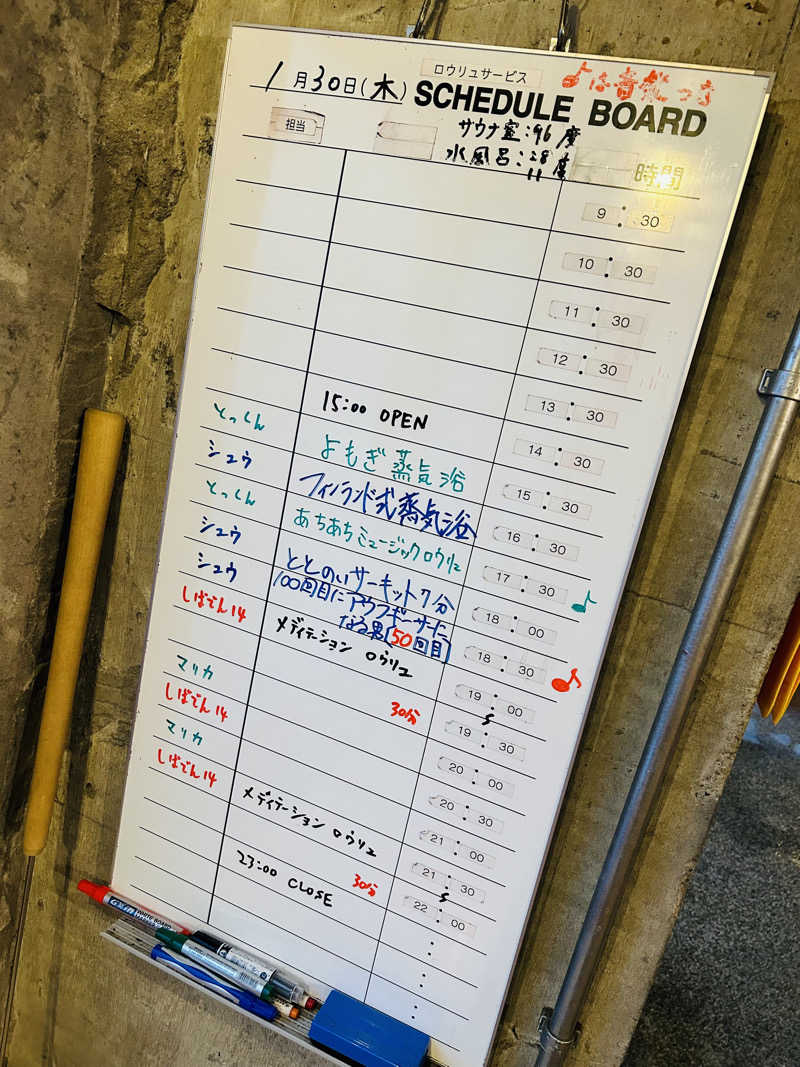 ロウリュサービス
♪は音楽つき
1月30日(木) SCHEDULE BOARD
サウナ室:96度
水風呂:28度
11
担当
時間
9:30
10:30
11:30
12:30
13:30
15:00 OPEN
14:30
とっくん よもぎ蒸気浴 15:30
シュウ フィンランド式蒸気浴 16:30
とっくん あちあちミュージックロウリュ 17:30 ♪
シュウ ととのいサーキット7分 18:00
シュウ 100回目にアウフギーサーになる男 50回目 18:30 ♪
しばてん14 メディテーション ロウリュ 19:00
30分 19:30
マリカ 20:00
しばてん14 20:30
マリカ 21:00
しばてん14 メディテーション ロウリュ 21:30
30分 22:00
23:00 CLOSE